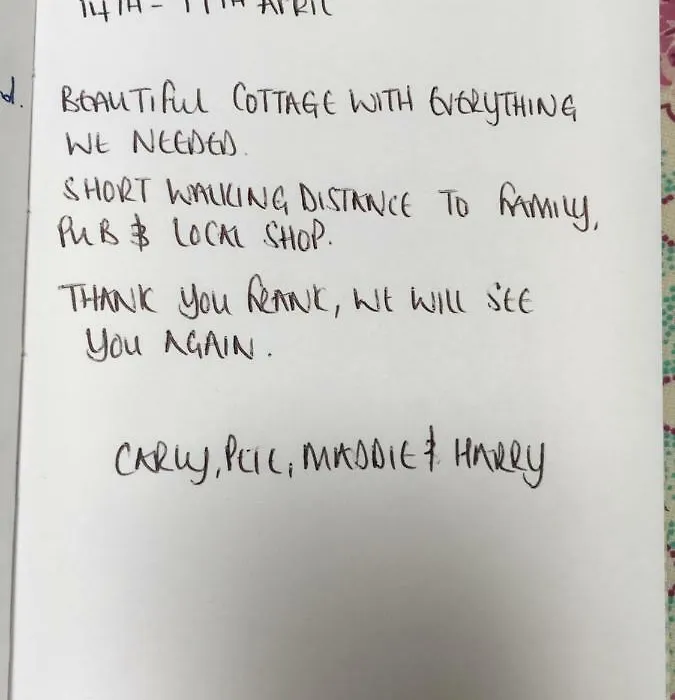 14TH - 17TH APRIL
d.
BEAUTIFUL COTTAGE WITH EVERYTHING
WE NEEDED.
SHORT WALKING DISTANCE TO FAMILY,
PUB & LOCAL SHOP.
THANK YOU FRANK, WE WILL SEE
YOU AGAIN.
CARLY, MADDIE & HARRY